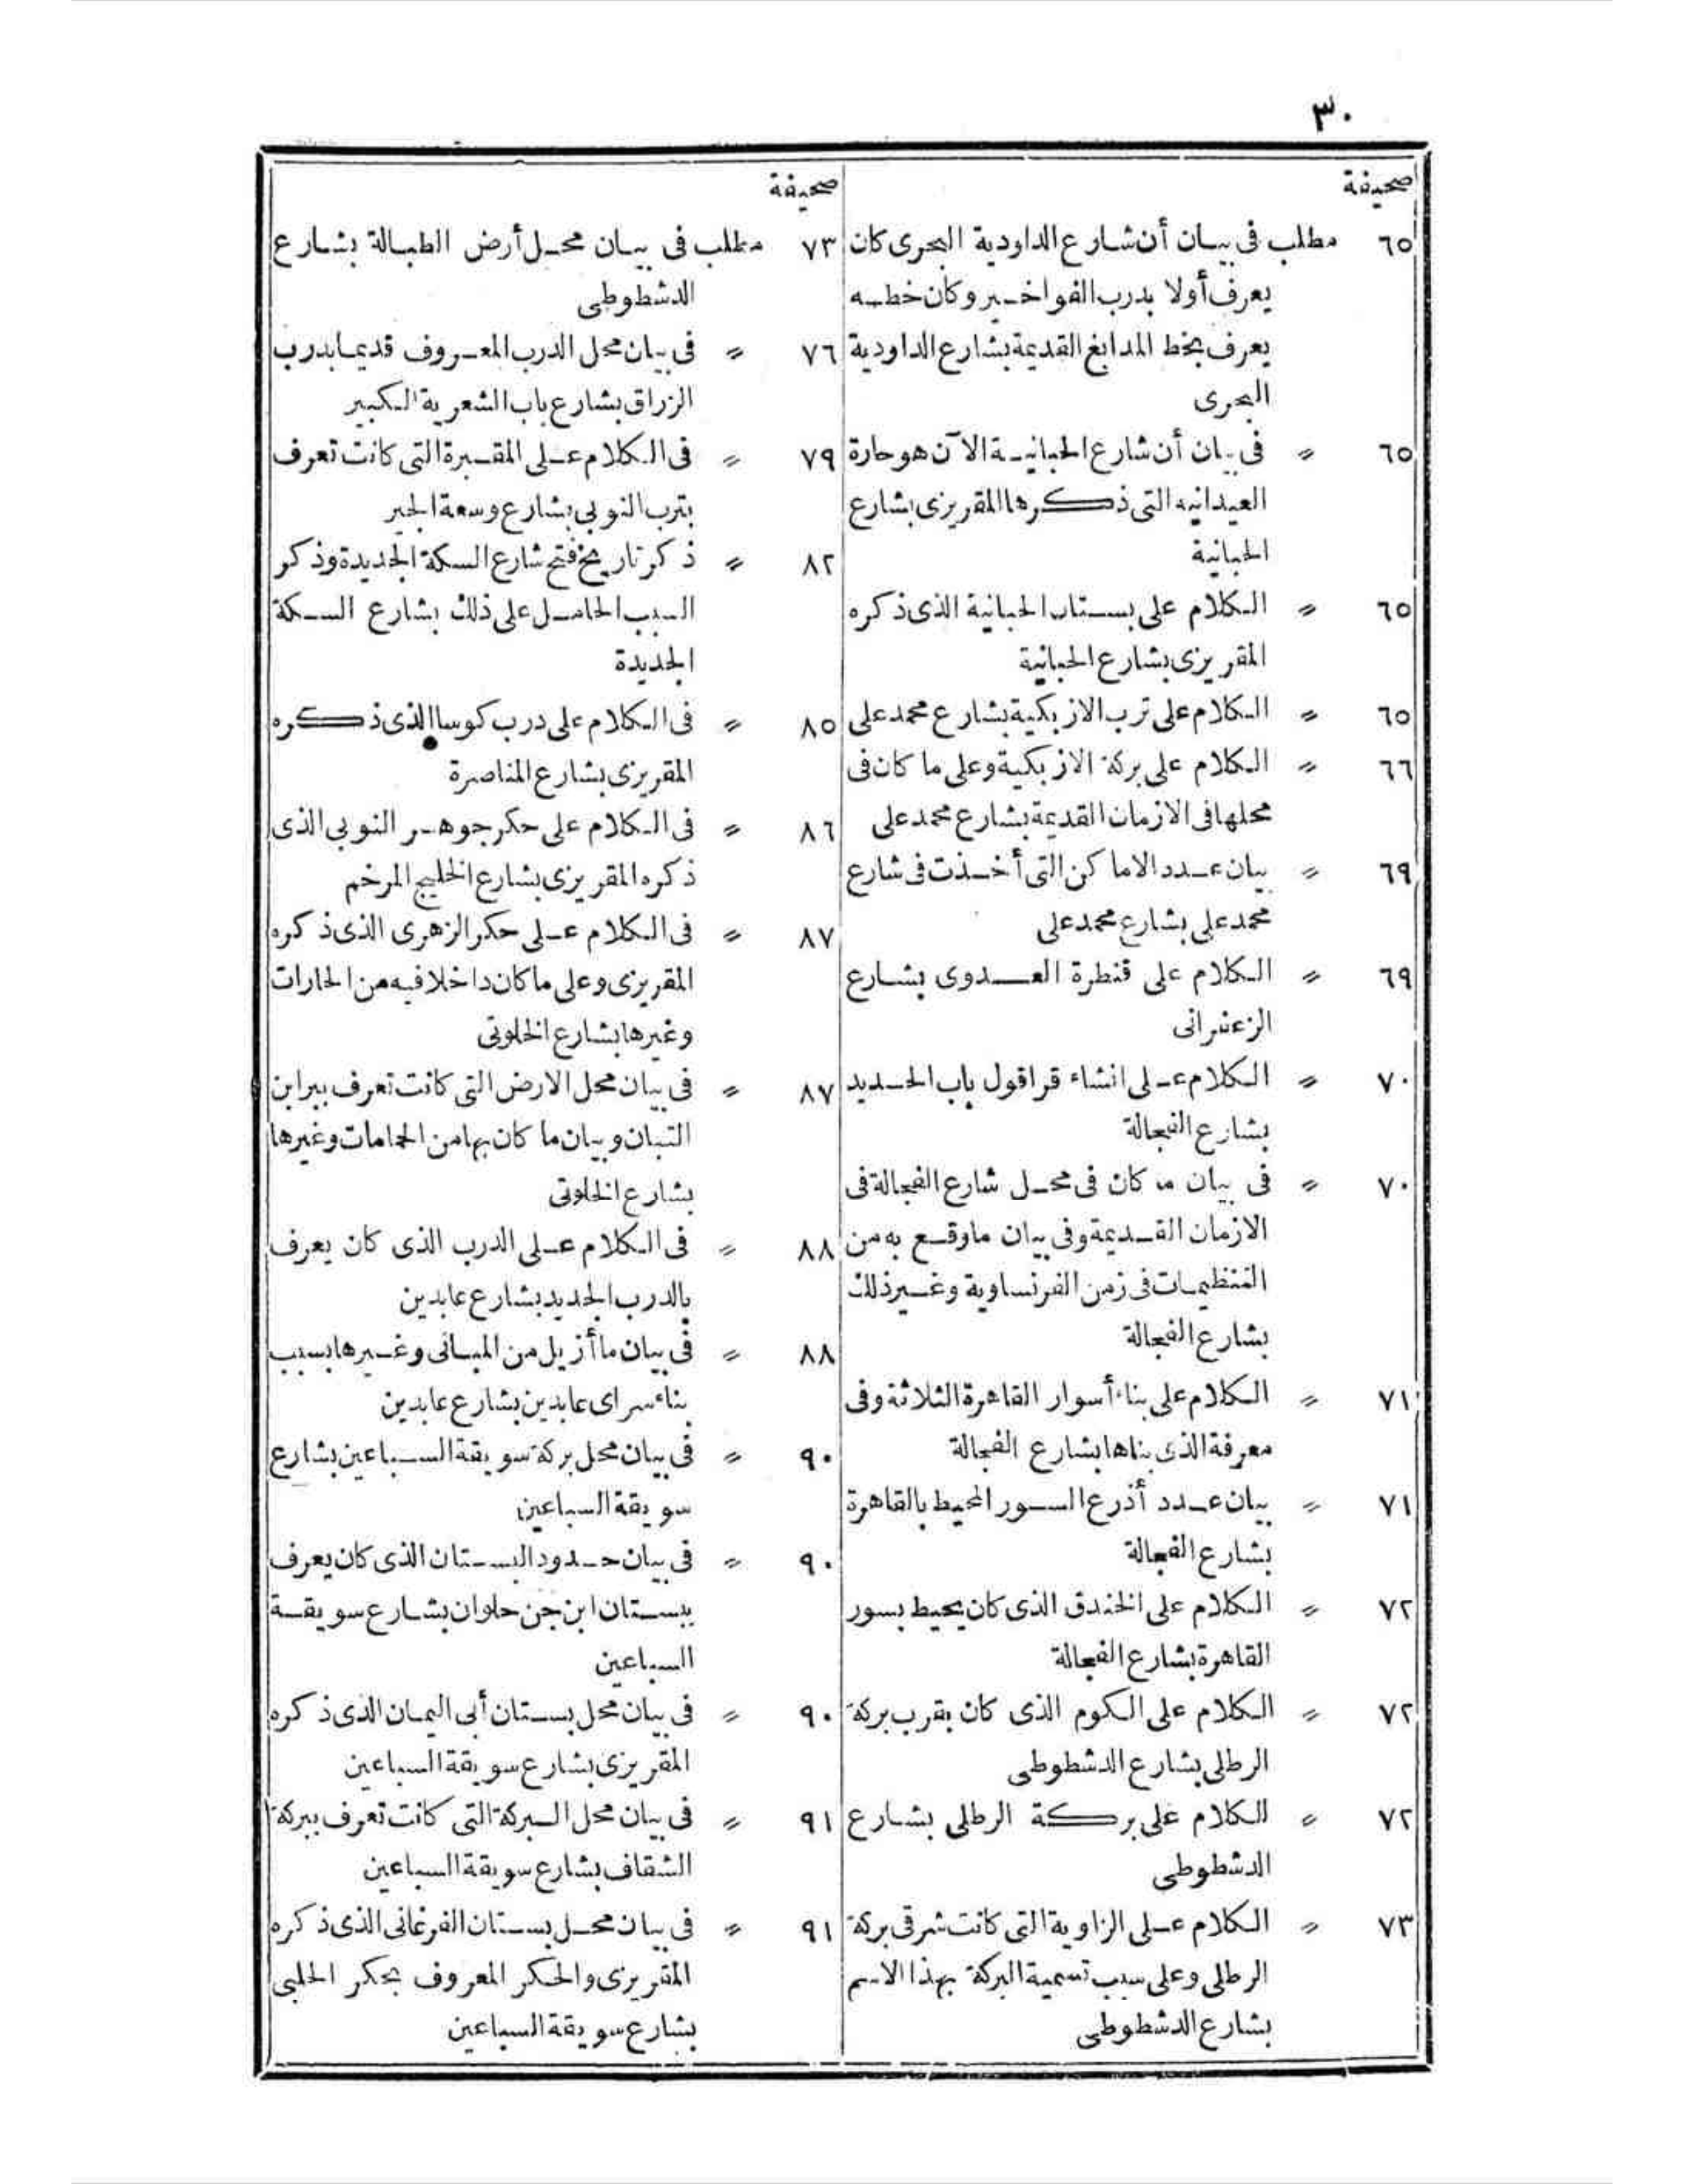 ٣٠
صحيفة
٦٥ مطلب فى بيان أن شارع الداودية البحرى كان
يعرف أولا بدرب الفواخير وكان خطه
يعرف بخط المدابغ القديمة بشارع الداودية
البحرى
٦٥ 〃 فى بيان أن شارع الحبانية الآن هو حارة
العيدانيه التى ذكرها المقريزى بشارع
الحبانية
٦٥ 〃 الكلام على بستان الحبانية الذى ذكره
المقريزى بشارع الحبانية
٦٥ 〃 الكلام على ترب الازبكية بشارع محمد على
٦٦ 〃 الكلام على بركة الازبكية وعلى ما كان فى
محلها فى الازمان القديمة بشارع محمد على
٦٩ 〃 بيان عدد الاماكن التى أخذت فى شارع
محمد على بشارع محمد على
٦٩ 〃 الكلام على قنطرة العدوى بشارع
الزعفرانى
٧٠ 〃 الكلام على انشاء قراقول باب الحديد
بشارع الفجالة
٧٠ 〃 فى بيان ما كان فى محل شارع الفجالة فى
الازمان القديمة وفى بيان ما وقع به من
التنظيمات فى زمن الفرنساوية وغير ذلك
بشارع الفجالة
٧١ 〃 الكلام على بناء أسوار القاهرة الثلاثة وفى
معرفة الذى بناها بشارع الفجالة
٧١ 〃 بيان عدد أذرع السور المحيط بالقاهرة
بشارع الفجالة
٧٢ 〃 الكلام على الخندق الذى كان يحيط بسور
القاهرة بشارع الفجالة
٧٢ 〃 الكلام على الكوم الذى كان بقرب بركة
الرطلى بشارع الدشطوطى
٧٢ 〃 الكلام على بركة الرطلى بشارع
الدشطوطى
٧٣ 〃 الكلام على الزاوية التى كانت شرقى بركة
الرطلى وعلى سبب تسمية البركة بهذا الاسم
بشارع الدشطوطى
صحيفة
٧٣ مطلب فى بيان محل أرض الطبالة بشارع
الدشطوطى
٧٦ 〃 فى بيان محل الدرب المعروف قديما بدرب
الزراق بشارع باب الشعرية الكبير
٧٩ 〃 فى الكلام على المقبرة التى كانت تعرف
بترب النوبى بشارع وسعة الجير
٨٢ 〃 ذكر تاريخ فتح شارع السكة الجديدة وذكر
السبب الحامل على ذلك بشارع السكة
الجديدة
٨٥ 〃 فى الكلام على درب كوسا الذى ذكره
المقريزى بشارع المناصرة
٨٦ 〃 فى الكلام على حكر جوهر النوبى الذى
ذكره المقريزى بشارع الخليج المرخم
٨٧ 〃 فى الكلام على حكر الزهرى الذى ذكره
المقريزى وعلى ما كان داخلا فيه من الحارات
وغيرها بشارع الخلوتى
٨٧ 〃 فى بيان محل الارض التى كانت تعرف ببر ابن
التبان وبيان ما كان بها من الحمامات وغيرها
بشارع الخلوتى
٨٨ 〃 فى الكلام على الدرب الذى كان يعرف
بالدرب الجديد بشارع عابدين
٨٨ 〃 فى بيان ما أزيل من المبانى وغيرها بسبب
بناء سراى عابدين بشارع عابدين
٩٠ 〃 فى بيان محل بركة سويقة السباعين بشارع
سويقة السباعين
٩٠ 〃 فى بيان حدود البستان الذى كان يعرف
ببستان ابن جن حلوان بشارع سويقة
السباعين
٩٠ 〃 فى بيان محل بستان أبى اليمان الذى ذكره
المقريزى بشارع سويقة السباعين
٩١ 〃 فى بيان محل البركة التى كانت تعرف ببركة
الشقاف بشارع سويقة السباعين
٩١ 〃 فى بيان محل بستان الفرغانى الذى ذكره
المقريزى والحكر المعروف بحكر الحلبى
بشارع سويقة السباعين